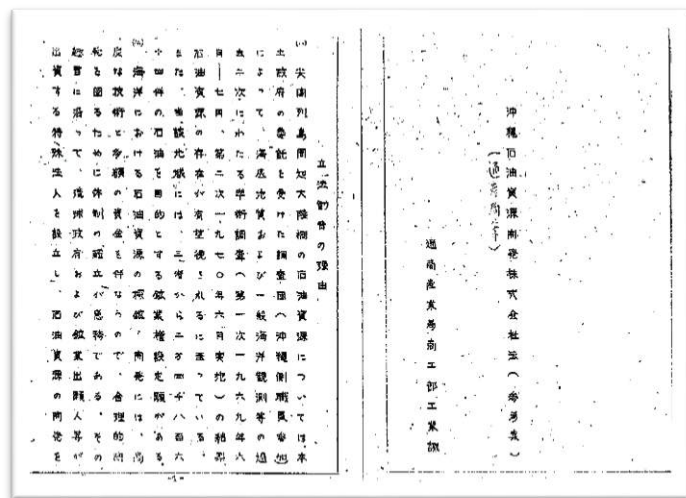 沖縄石油資源開発株式会社法(参考案)
(通産局案)
通商産業局商工部工業課
立法勧告の理由
(一) 尖閣列島周辺大陸棚の石油資源については本
土政府の委託を受けた調査団(沖縄側職員参加)
によって、海底地質および一般海洋観測等の
二次にわたる学術調査(第一次一九六九年六
月―七月、第二次一九七〇年六月実施)の結果
石油資源の存在が有望視されるに至っている。
また、当該地域には、三者から二万四千八百六
十四件の石油を目的とする鉱業権設定願がある
(二) 海洋における石油資源の探鉱、開発には、高
度な技術と多額の資金を伴なうので、合理的開
発を図るために体制の確立が急務である。その
趣旨に沿って、琉球政府および鉱業出願人等が
出資する特殊法人を設立し、石油資源の開発を
-1-